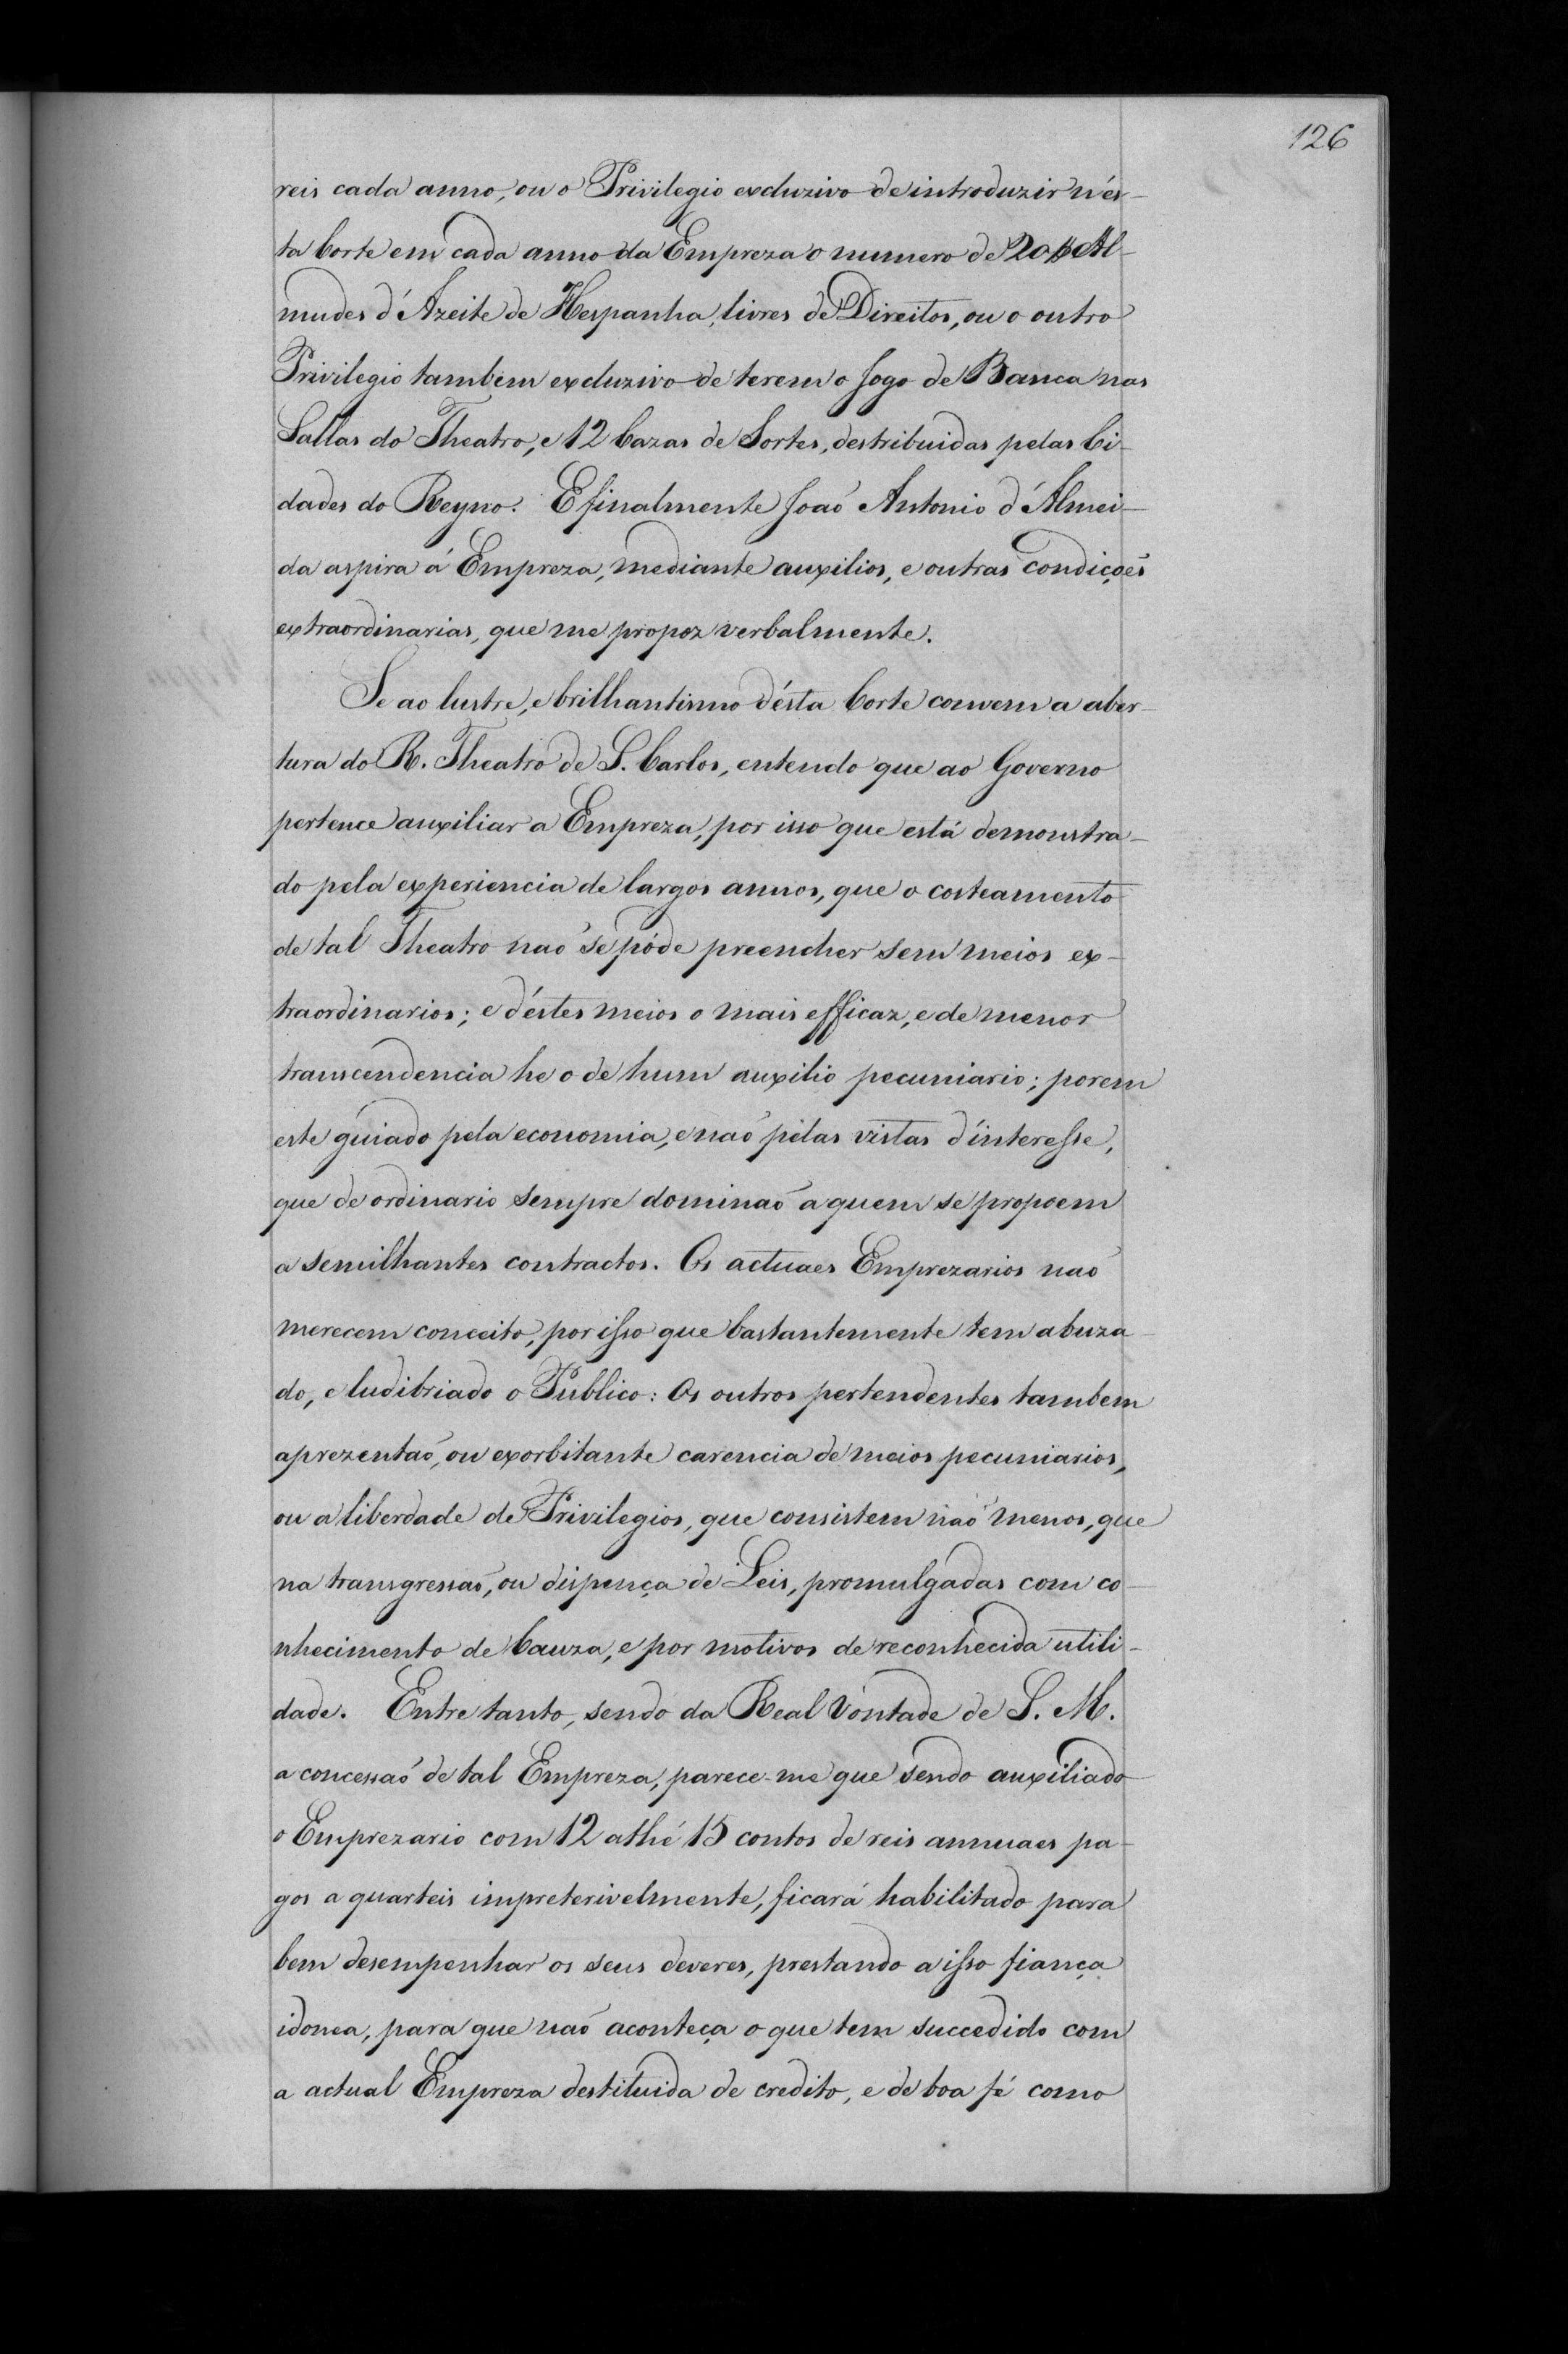 126
reis cada anno, ou o Privilegio excluzivo de introduzir n'és-
ta Corte em cada anno da Empreza o numero de 20$ Al-
mudes d'Azeite de Hespanha, livres de Direitos, ou o outro
Privilegio tambem excluzivo de terem o Jogo de Banca nas
Sallas do Theatro, e 12 Cazas de Sortes, destribuidas pelas Ci-
dades do Reyno. E finalmente Joaõ Antonio d'Almei-
da aspira á Empreza, mediante auxilios, e outras condiçoẽs
extraordinarias, que me propoz verbalmente.
Se ao lustre, e brilhantismo d'ésta Corte convem a aber-
tura do R. Theatro de S. Carlos, entendo que ao Governo
pertence auxiliar a Empreza, por isso que está demonstra-
do pela experiencia de largos annos, que o costeamento
de tal Theatro naõ se póde preencher sem meios ex-
traordinarios; e d'éstes meios o mais efficaz, e de menor
transcendencia he o de hum auxilio pecuniario; porem
este guiado pela economia, e naõ pelas vistas d'interesse,
que de ordinario sempre dominaõ a quem se propoem
a semilhantes contractos. Os actuaes Emprezarios naõ
merecem conceito, por isso que bastantemente tem abuza-
do, e ludibriado o Publico: Os outros pertendentes tambem
aprezentaõ, ou exorbitante carencia de meios pecuniarios,
ou a liberdade de Privilegios, que consistem naõ menos, que
na transgressaõ, ou dispença de Leis, promulgadas com co-
nhecimento de Cauza, e por motivos de reconhecida utili-
dade. Entre tanto, sendo da Real Vontade de S. M.
a concessaõ de tal Empreza, parece-me que sendo auxiliado
o Emprezario com 12 athé 15 contos de reis annuaes pa-
gos a quarteis impreterivelmente, ficará habilitado para
bem desempenhar os seus deveres, prestando a isso fiança
idonea, para que naõ aconteça o que tem succedido com
a actual Empreza destituida de credito, e de boa fé como